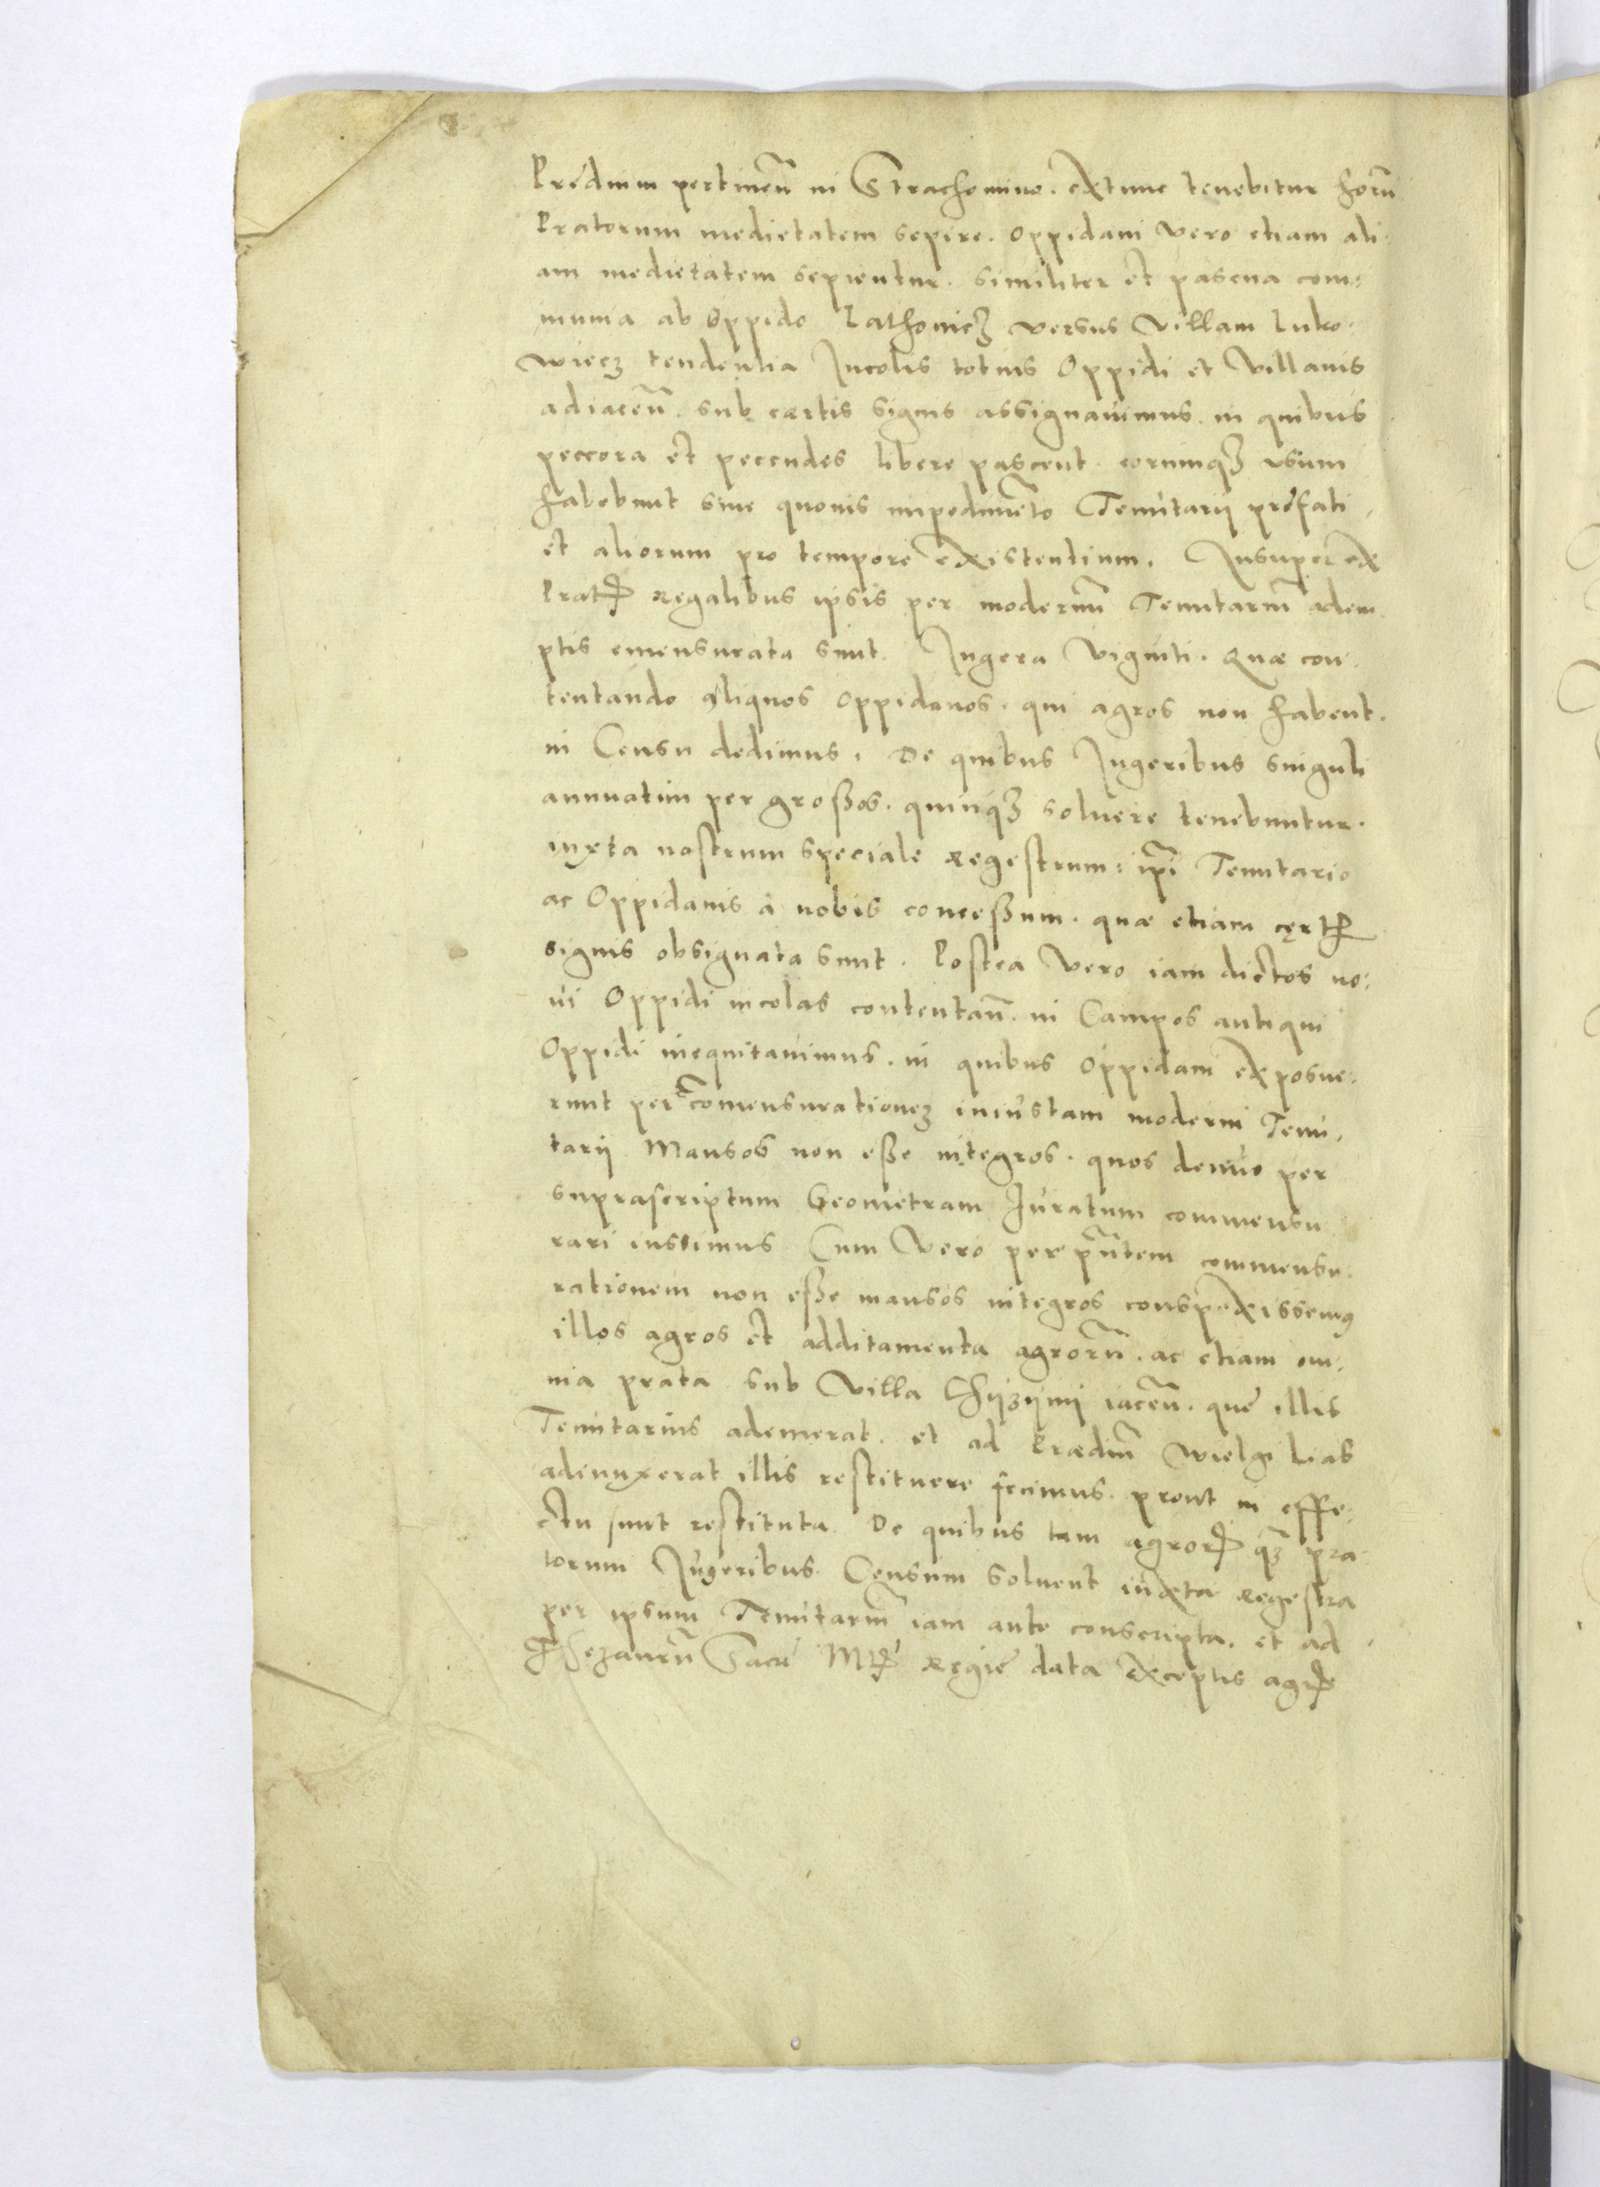 Prędium pertineñ in Strachomino. extunc tenebitur horũ
Pratorum medietatem sepire. Oppidani vero etiam ali-
am medietatem sepientur. similiter et pascua com:
munia ab Oppido Lathowicz versus Villam Luko-
wiecz tendentia Incolis totius Oppidi et Villanis
adiaceñ. sub certis signis assignavimus. in quibus
peccora et pecudes libere pascent. eorumqꝫ usum
habebunt sine quovis impedimẽto Tenutarii pręfati
et aliorum pro tempore existentium. Insuper ex
Pratꝭ regalibus ipsis per modernũ Tenutariũ adem
ptis emensurata sunt. Iugera Viginti. Quæ con-
tentando aliquos oppidanos. qui agros non habent.
in Censu dedimus. De quibus Iugeribus singuli
annuatim per großos. quinqꝫ solvere tenebuntur.
iuxta nostrum speciale regestrum: ip̃i Tenutario
ac Oppidanis à nobis conceßum. quæ etiam certꝭ
signis obsignata sunt. Postea vero iam dictos no:
vi Oppidi incolas contentañ. in Campos antiqui
Oppidi inequitavimus. in quibus Oppidani exposue:
runt per com̃ensurationeꝫ iniustam moderni Tenu-
tarii Mansos non eße integros. quos denuo per
suprascriptum Geometram Iuratum commensu
rari iussimus Cum Vero per pñtem commensu-
rationem non eße mansos integros conspexissemꝰ
illos agros et additamenta agrorũ. ac etiam om-
nia prata sub Villa Chyzyny iaceñ. quę illis
Tenutarius ademerat. et ad Prædiũ Wielgi Las
adiunxerat illis restituere fecimus. prout in effe:
ctu sunt restituta. De quibus tam agrorꝭ qꝫ pra
torum Iugeribus. Censum solvent iuxta regestra
per ipsum Tenutariũ iam ante conscripta. et ad
Thezaurũ Sacrę Mtꝭ Regię data exceptis agrꝭ